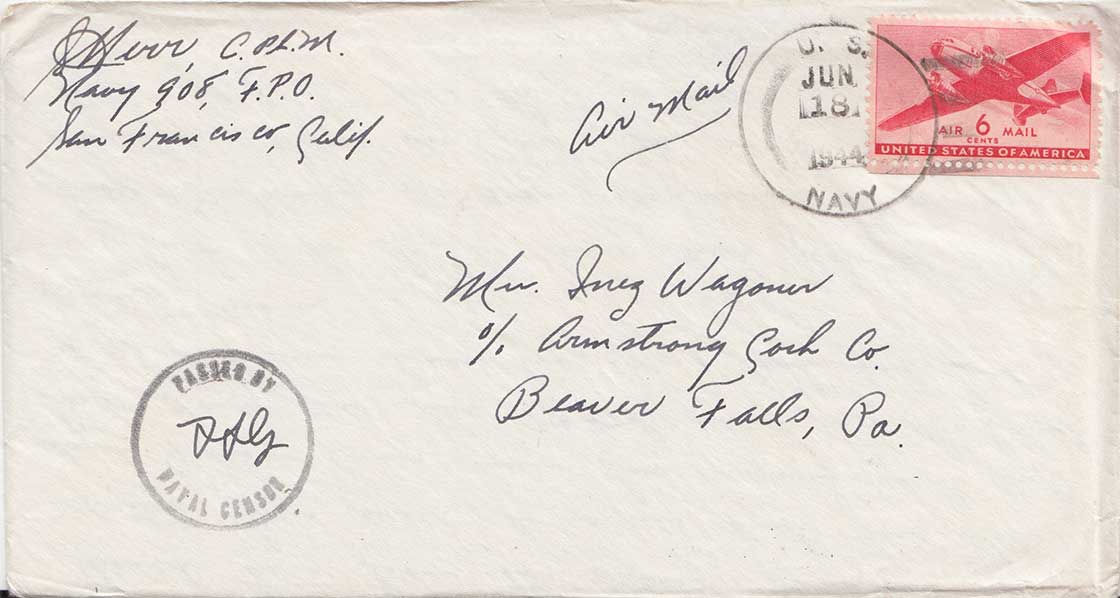 Herr, C.Ph.M.
Navy 908, F.P.O.
San Francisco, Calif.
Air Mail
U. S.
JUN
18
1944
NAVY
AIR 6 MAIL
CENTS
UNITED STATES OF AMERICA
Mrs. Inez Wagoner
c/o Armstrong Cork Co.
Beaver Falls, Pa.
PASSED BY
NAVAL CENSOR